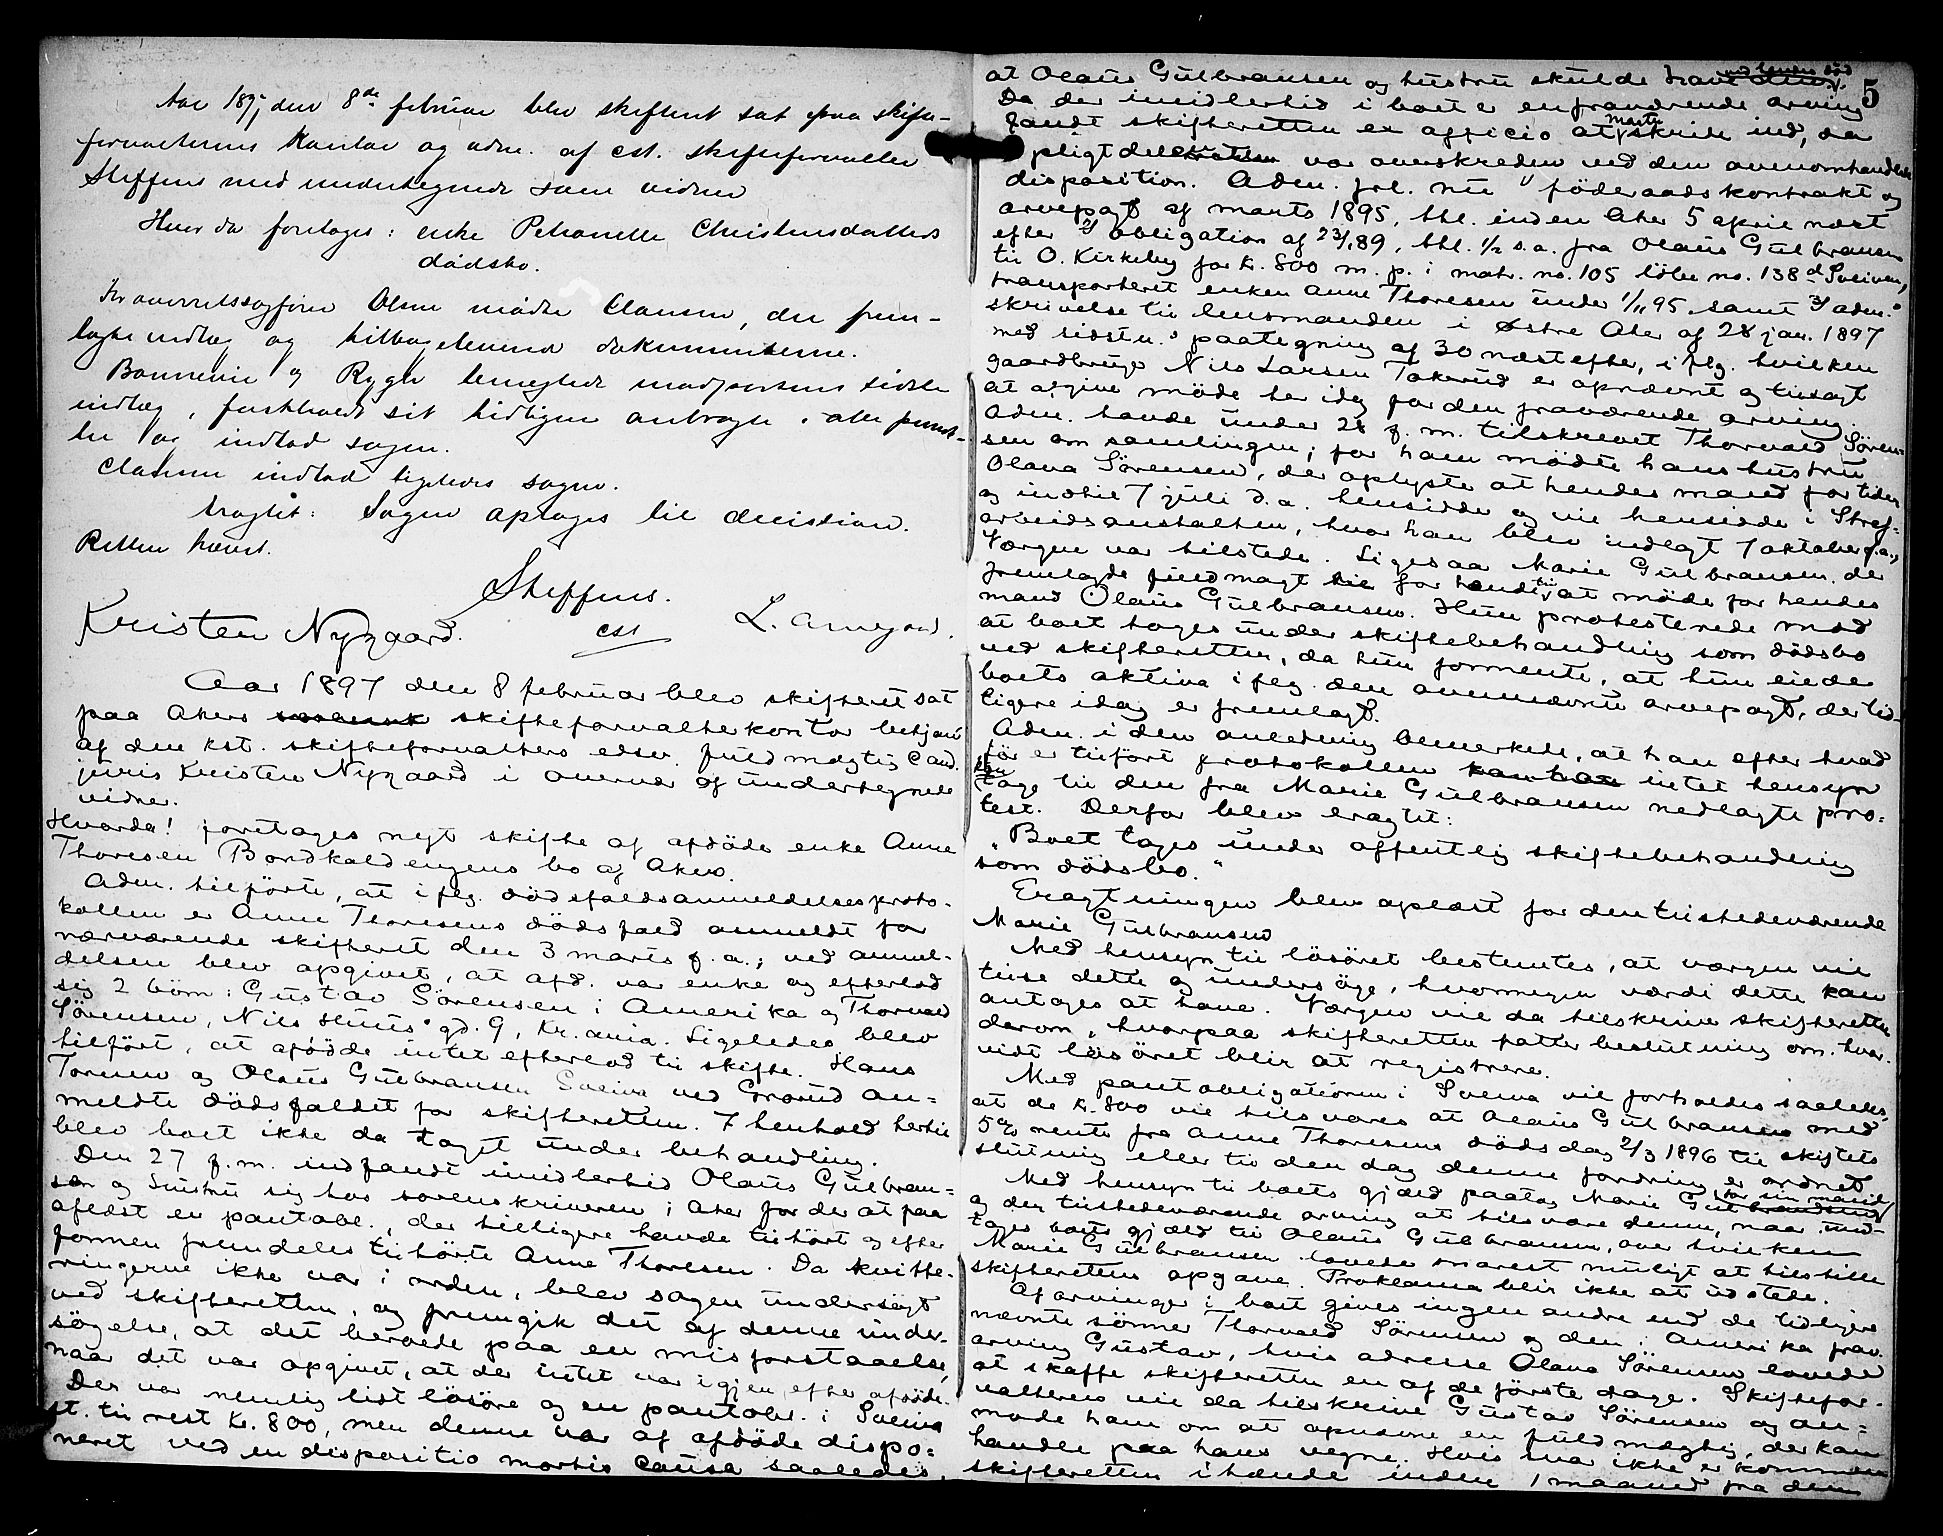 Aar 1897 den 8de februar blev skifteret sat paa skifte-
forvalterens kontor og adm. af cst. skifteforvalter
Steffens med undertegnede som vidner
Hvor da foretoges: enke Petronelle Christensdatters
dødsbo.
For overretssagfører Olsen mødte Clausen, der frem-
lagde indlæg og tilbageleverede dokumenterne.
Bonnevie og Rygh benegtede modpartens sidste
indlæg, fastholdt sit tidligere anbragte i alle punk-
ter og indlod sagen.
Clausen indlod ligeledes sagen.
Eragtet: Sagen optages til decision.
Retten hævet.
Steffens.
cst
Kristen Nygaard. L. Arnegaard.
Aar 1897 den 8 februar blev skifteret sat
paa Akers skifteforvalterkontor betjent
af den kst. skifteforvalters edsv. fuldmægtig Cand.
juris Kristen Nygaard i overvær af undertegnede
vidner.
Hvorda! foretoges nyt skifte af afdøde enke Anne
Thoresen Bondkaldengens bo af Aker.
Adm. tilførte, at ifølg. dødsfaldsanmeldelsesproto-
kollen er Anne Thoresens dødsfald anmeldt for
nærværende skifteret den 3 marts f. a.; ved anmel-
delsen blev opgivet, at afd. var enke og efterlod
sig 2 børn: Gustav Sørensen i Amerika og Thorvald
Sørensen, Nils Huus' gd. 9, Kr.ania. Ligeledes blev
tilført, at afdøde intet efterlod til skifte. Hans
Toresen og Olaus Gulbransen Sveiva ved Grorud an=
meldte dødsfaldet for skifteretten. I henhold hertil
blev boet ikke da taget under behandling.
Den 27 f. m. indfandt imidlertid Olaus Gulbran=
sen og hustru sig hos sorenskriveren i Aker for der at faa
aflæst en pantobl., der tilligere havde tilhørt og efter
formen fremdeles tilhørte Anne Thoresen. Da kvitte-
ringerne ikke var i orden, blev sagen undersøgt
ved skifteretten, og fremgik det af denne under-
søgelse, at det beroede paa en misforstaaelse,
naar det var opgivet, at der intet var igjen efter afdøde.
Der var nemlig lidt løsøre og en pantobl. i Sveiva
st. til rest kr. 800, men denne var af afdøde dispo=
neret ved en dispositio mortis causa saaledes,
5
at Olaus Gulbransen og hustru skulde have den ved hendes død.
Da der imidlertid i boet er en fraværende arving
fandt skifteretten ex officio at maatte skride ind, da
pligtdelen var overskreden ved den ovenomhandlede
disposition. Adm. frl. nu 1) føderaadskontrakt og
arvepagt af marts 1895, thl. inden Aker 5 april næst
efter 2) obligation af 23/1 89, thl. 1/2 s.a. fra Olaus Gulbransen
til O. Kirkeby for kr. 800 m. p. i matr. no. 105 løbe no. 138d Sveiven,
transporteret enken Anne Thoresen under 1/11 95 samt 3) adm.s
skrivelse til lensmanden i Østre Aker af 28 jan. 1897
med sidstn.s paategning af 30 næstefter, i flg. hvilken
gaardbruger Nils Larsen Tokerud er opnævnt og tilsagt
at afgive møde her idag for den fraværende arving.
Adm. havde under 28 f. m. tilskrevet Thorvald Søren-
sen om samlingen; for ham mødte hans hustru
Olava Sørensen, der oplyste at hendes mand for tiden
og indtil 7 juli d.a. hensidder og vil hensidde i Straf-
arbeidsanstalten, hvor han blev indlagt 7 oktober f.a.,
Værgen var tilstede. Ligesaa Marie Gulbransen, der
fremlagde fuldmagt for hende til at møde for hendes
mand Olaus Gulbransen. Hun protesterede mod
at boet toges under skiftebehandling som dødsbo
ved skifteretten, da hun formente, at hun eiede
boets aktiva ifølg. den ovennævnte arvepagt, der tid-
ligere idag er fremlagt.
Adm. i den anledning bemerkede, at han efter hvad
før er tilført protokollen intet hensyn
kan tage til den fra Marie Gulbransen nedlagte pro=
test. Derfor blev eragtet:
"Boet tages under offentlig skiftebehandling
som dødsbo."
Eragtningen blev oplæst for den tilstedeværende
Marie Gulbransen
Med hensyn til løsøret bestemtes, at værgen vil
tilse dette og undersøge, hvormegen værdi dette kan
antages at have. Værgen vil da tilskrive skifteretten
derom, hvorpaa skifteretten fatter beslutning om, hvor-
vidt løsøret blir at registrere.
Med pantobligationen i Sveiva vil forholdes saaledes,
at de kr. 800 vil tilsvares at Olaus Gulbransen med
5 % rente fra Anne Thoresens dødsdag 2/3 1896 til skiftets
slutning eller til den dag denne fordring er ordnet
Med hensyn til boets gjæld paatog Marie Gulbrandsen for sin mand
og den tilstedeværende arving at tilsvare denne, naar und-
tages boets gjæld til Olaus Gulbransen, over hvilken
Marie Gulbransen lovede snarest muligt at tilstille
skifteretten opgave. Proklama blir ikke at udstede.
Af arvinger i boet gives ingen andre end de tidligere
nævnte sønner Thorvald Sørensen og den i Amerika frav.
arving Gustav, hvis adresse Olava Sørensen lovede
at skaffe skifteretten en af de første dage. Skiftefor-
valteren vil da tilskrive Gustav Sørensen og an=
mode ham om at opnævne en fuldmægtig, der kan
handle paa hans vegne. Hvis svar ikke er kommen
skifteretten ihænde inden 1 maaned fra den